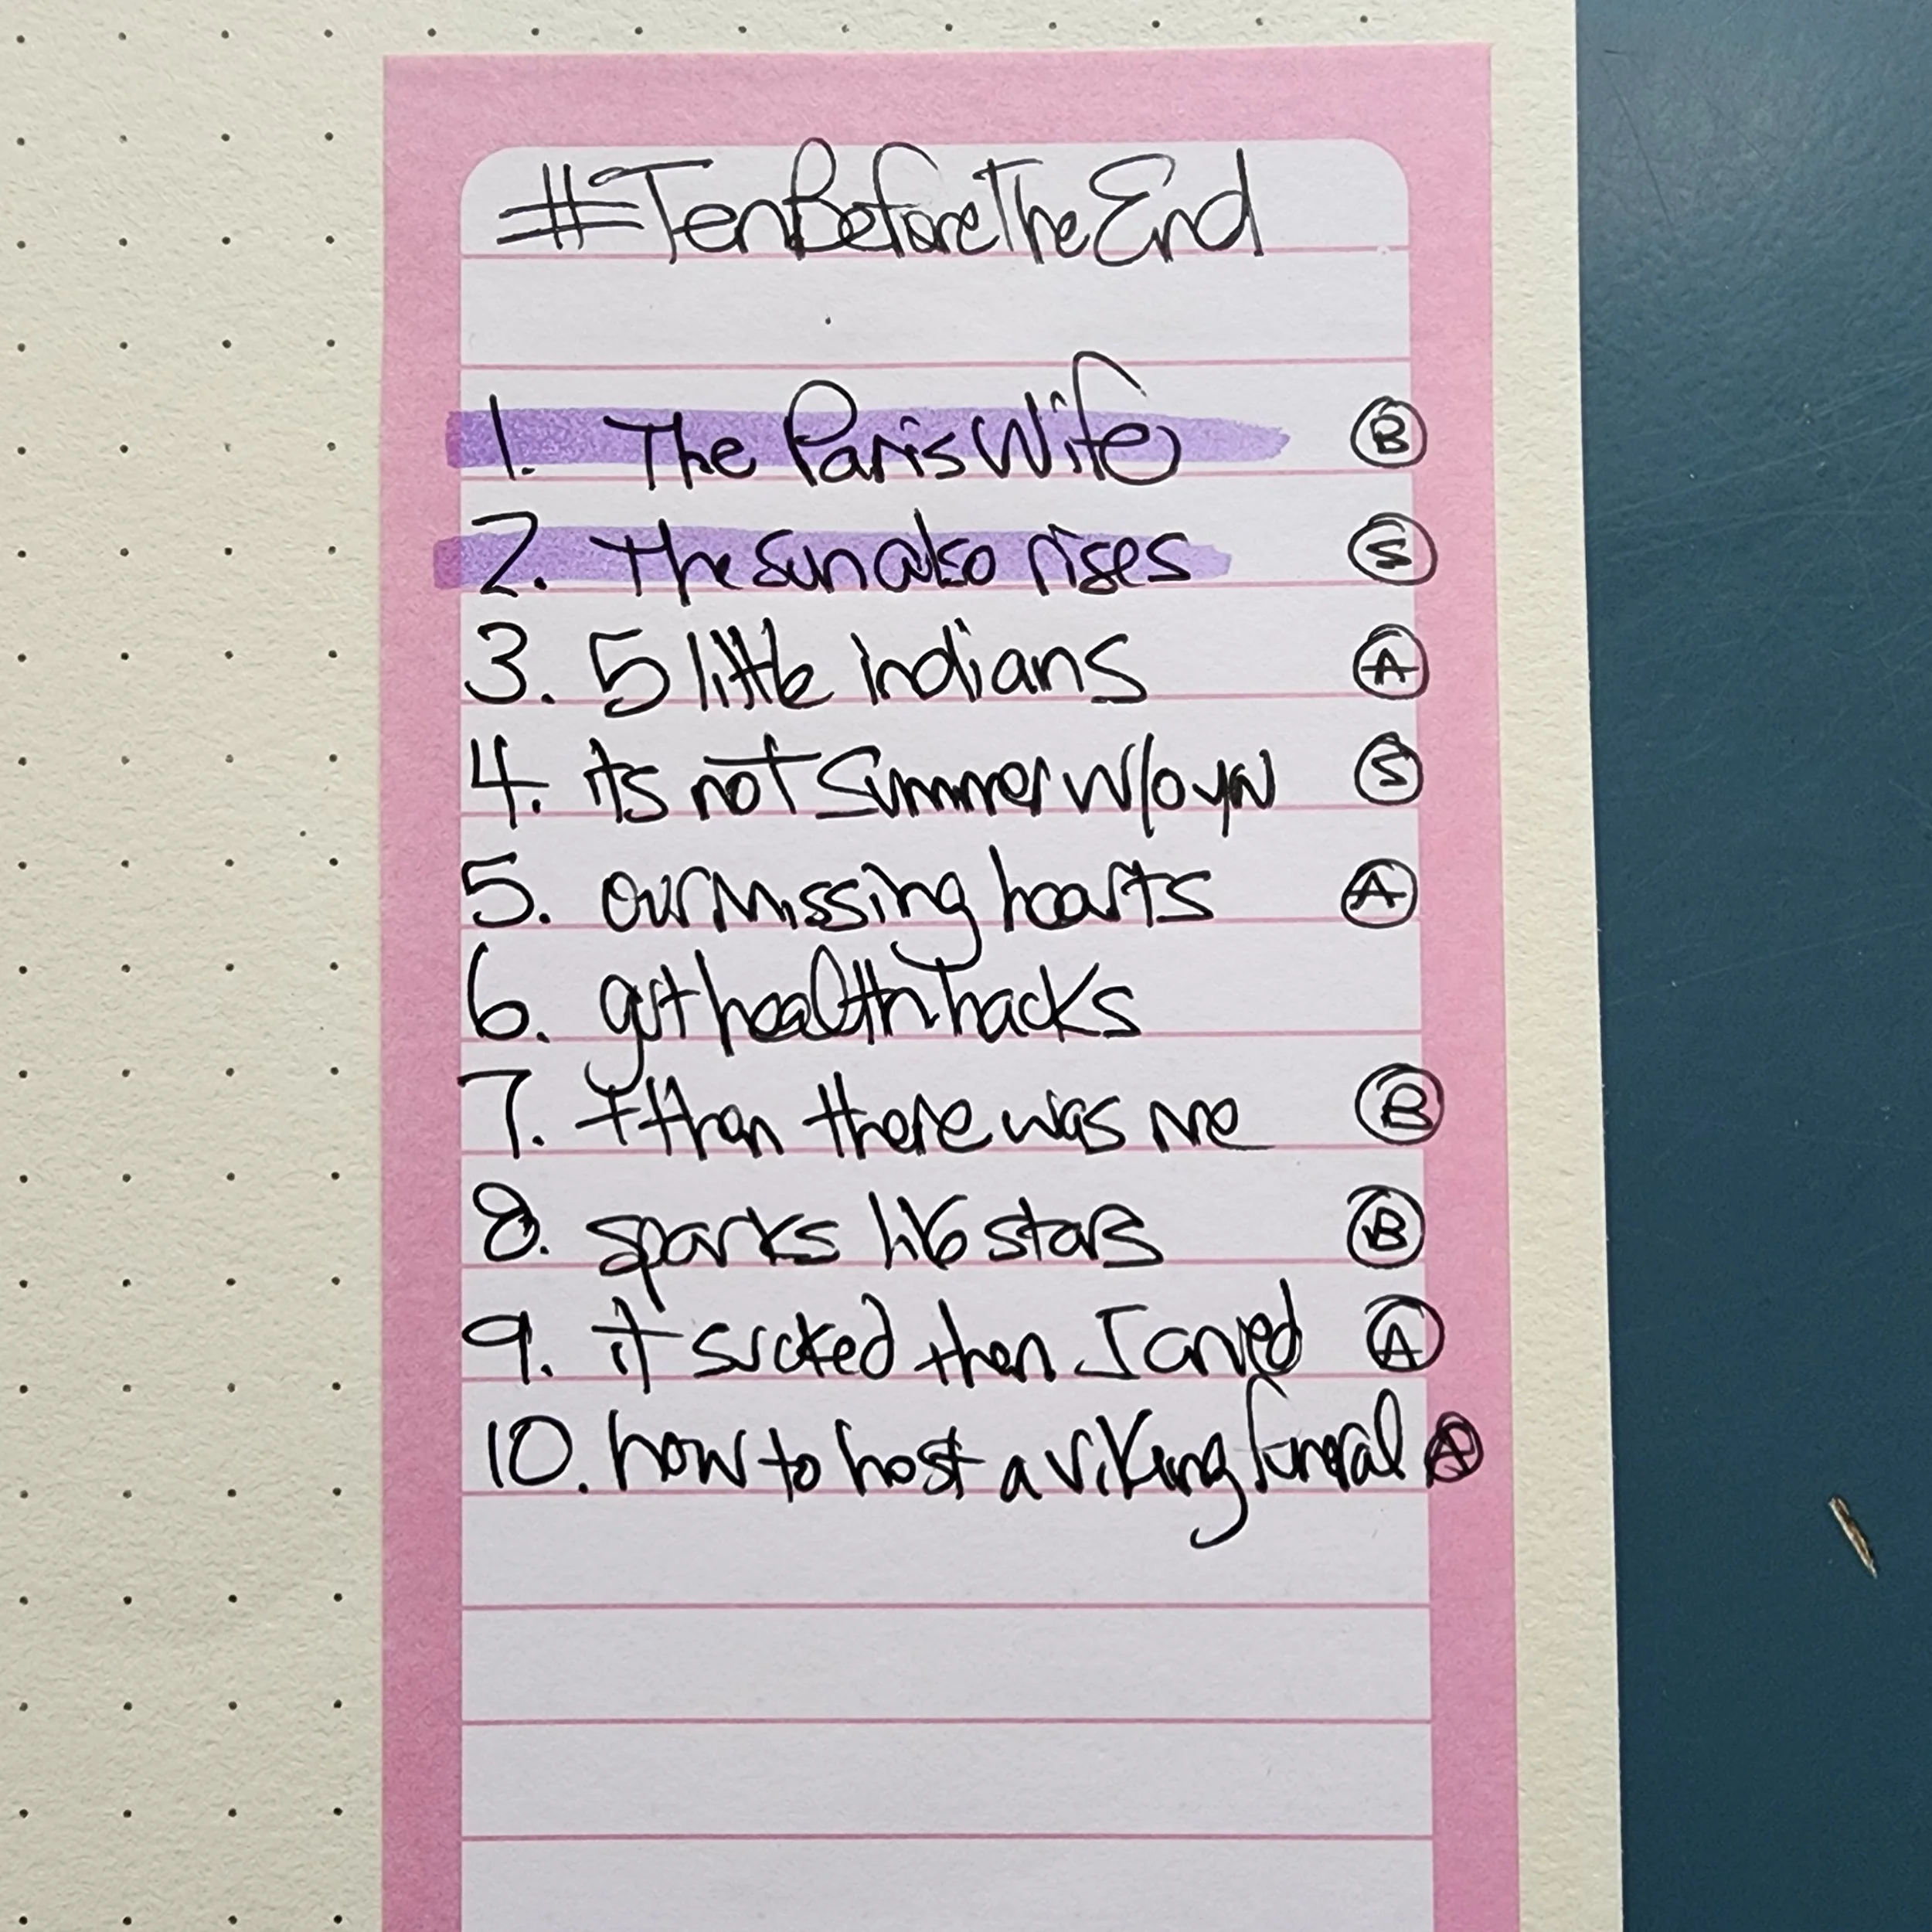 #TenBeforeTheEnd
1. The Paris Wife B
2. The sun also rises S
3. 5 little indians A
4. its not summer w/o yu S
5. our missing hearts A
6. gut health hacks
7. + then there was me B
8. sparks like stars B
9. it sucked then I cried A
10. how to host a viking funeral A